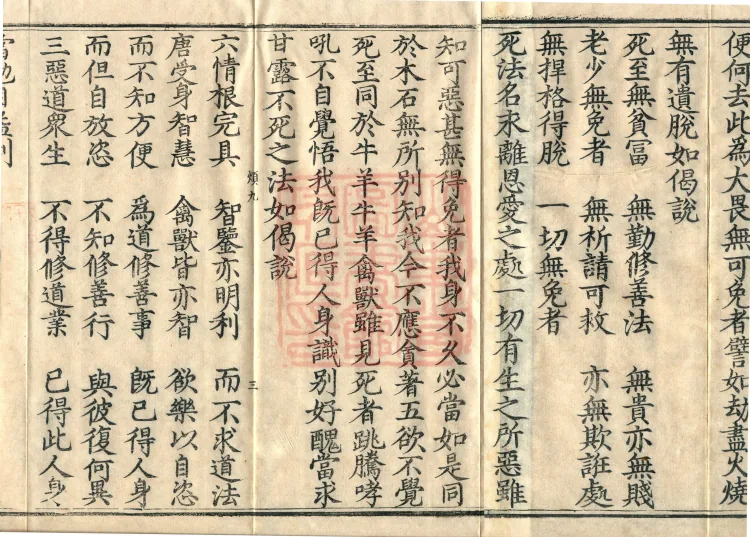 便何去此為大畏無可免者譬如劫盡火燒
無有遺脫如偈說
死至無貧冨　無勤修善法　無貴亦無賤
老少無免者　無祈請可救　亦無欺誑處
無捍格得脫　一切無免者
死法名永離恩愛之處一切有生之所惡雖
知可惡甚無得免者我身不久必當如是同
於木石無所別知我今不應貪著五欲不覺
死至同於牛羊牛羊禽獸雖見死者跳騰哮
吼不自覺悟我既已得人身識別好醜當求
甘露不死之法如偈說
煩九　三
六情根完具　智鑒亦明利　而不求道法
唐受身智慧　禽獸皆亦智　欲樂以自恣
而不知方便　為道修善事　既已得人身
而但自放恣　不知修善行　與彼復何異
三惡道眾生　不得修道業　已得此人身
當勉自益利